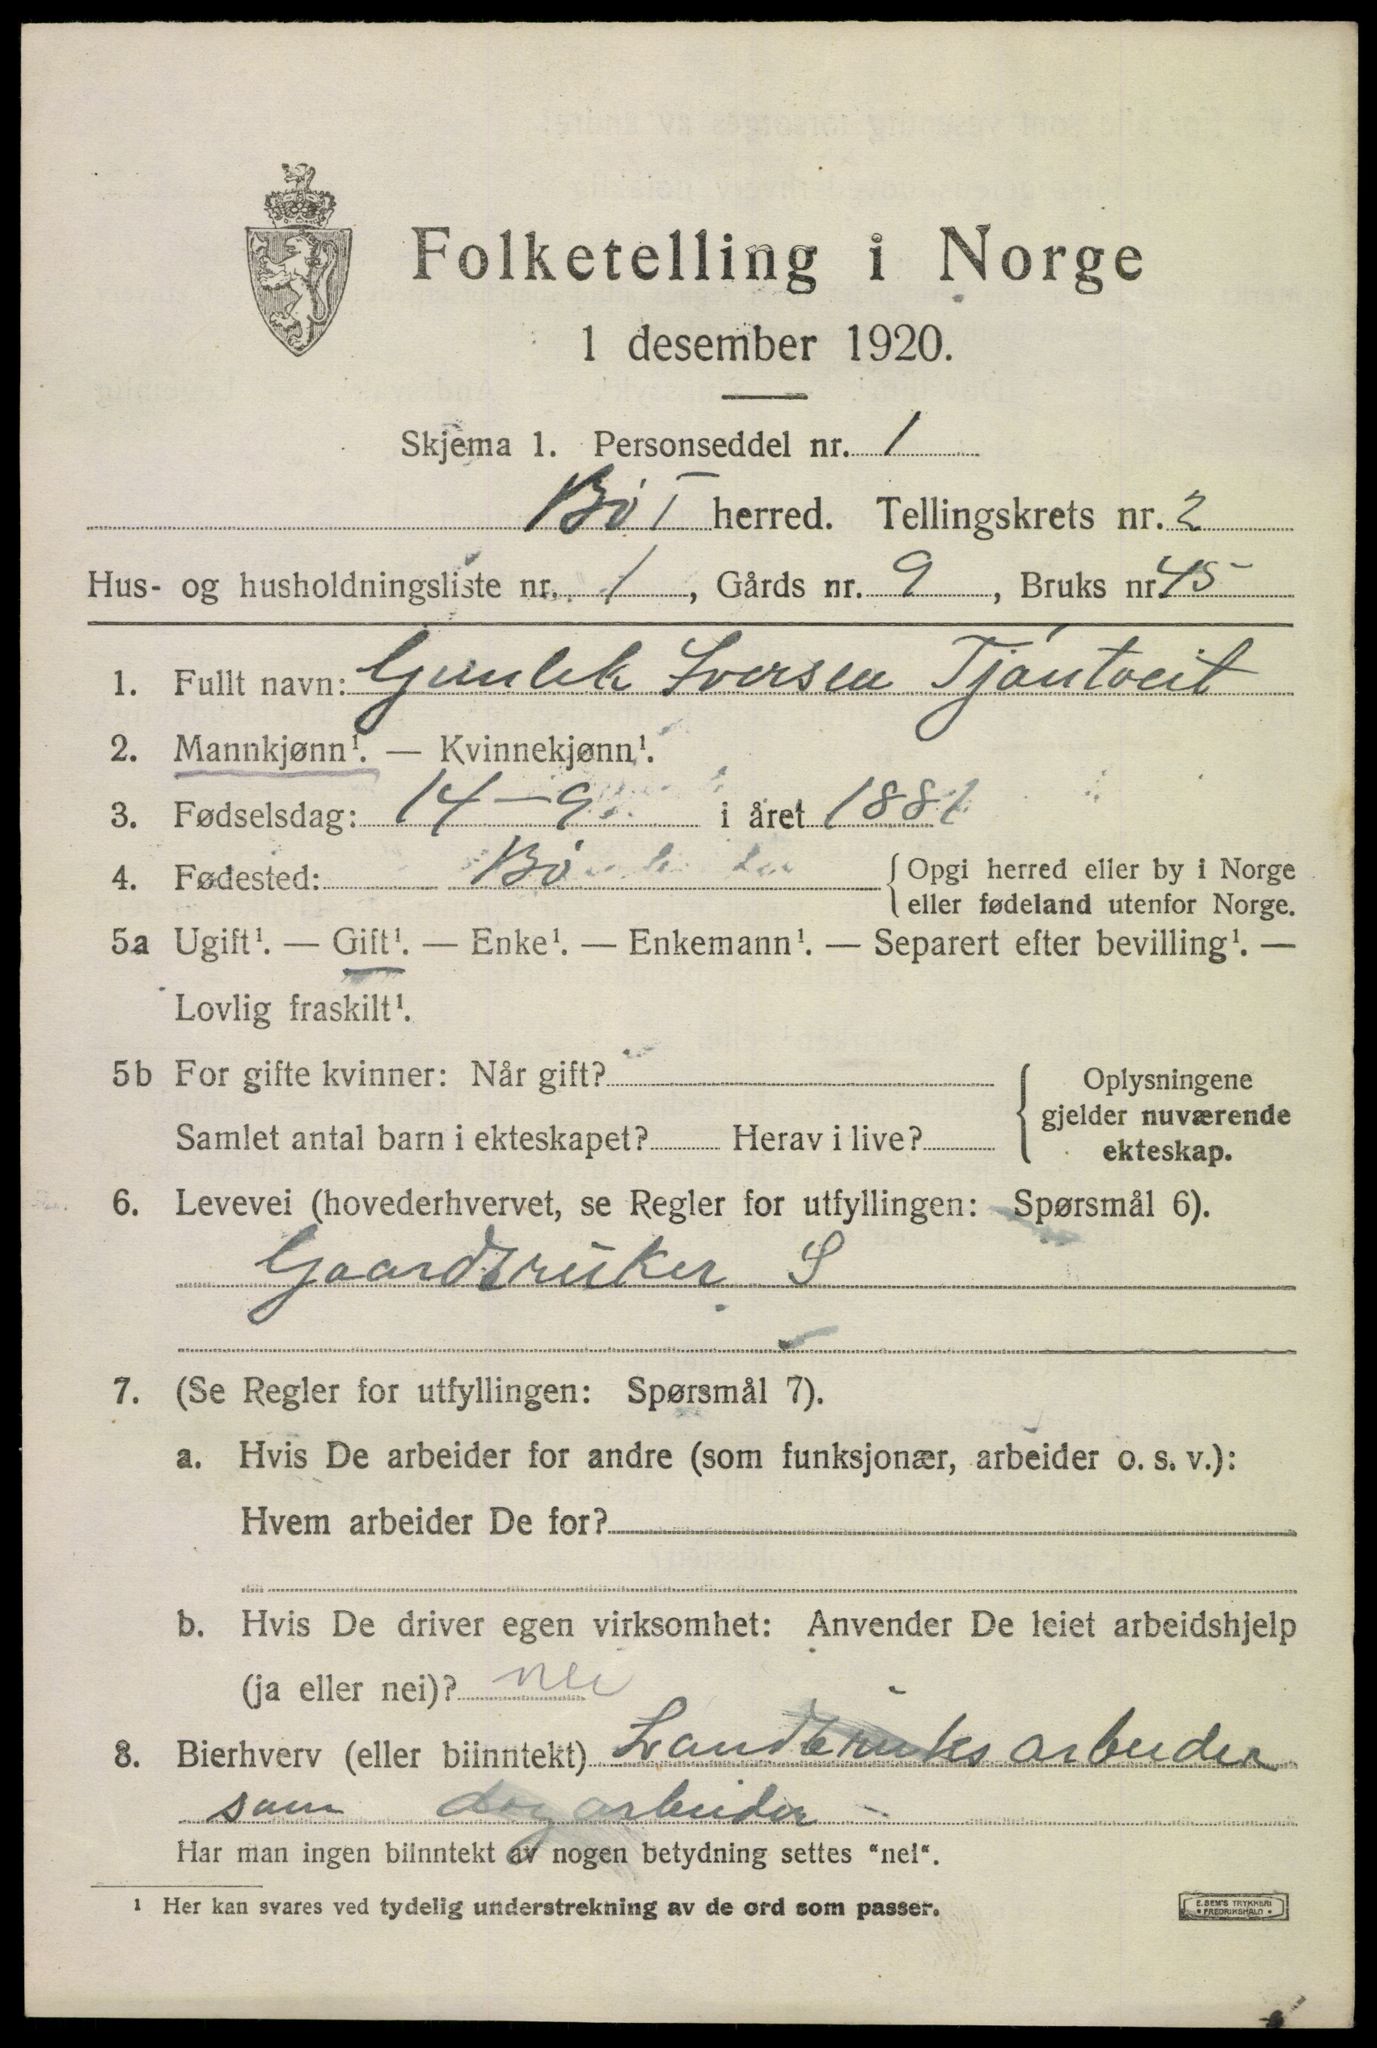 Folketelling i Norge
1 desember 1920.
Skjema 1. Personseddel nr. 1
Bø T herred. Tellingskrets nr. 2
Hus- og husholdningsliste nr. 1, Gårds nr. 9, Bruks nr. 45
1. Fullt navn: Gunlek Iversen Tjöntveit
2. Mannkjønn¹. — Kvinnekjønn¹.
3. Fødselsdag: 14-9 i året 1881
4. Fødested: Bø {Opgi herred eller by i Norge
eller fødeland utenfor Norge.
5a Ugift¹. — Gift¹. — Enke¹. — Enkemann¹. — Separert efter bevilling¹. —
Lovlig fraskilt¹.
5b For gifte kvinner: Når gift?
Samlet antal barn i ekteskapet? Herav i live?
{Oplysningene
gjelder nuværende
ekteskap.
6. Levevei (hovederhvervet, se Regler for utfyllingen: Spørsmål 6).
Gaardbruker S
7. (Se Regler for utfyllingen: Spørsmål 7).
a. Hvis De arbeider for andre (som funksjonær, arbeider o. s. v.):
Hvem arbeider De for?
b. Hvis De driver egen virksomhet: Anvender De leiet arbeidshjelp
(ja eller nei)? nei
8. Bierhverv (eller biinntekt) Landbruksarbeider
som dagarbeider
Har man ingen biinntekt av nogen betydning settes "nei".
¹ Her kan svares ved tydelig understrekning av de ord som passer.
E. SEM'S TRYKKERI
FREDRIKSHALD